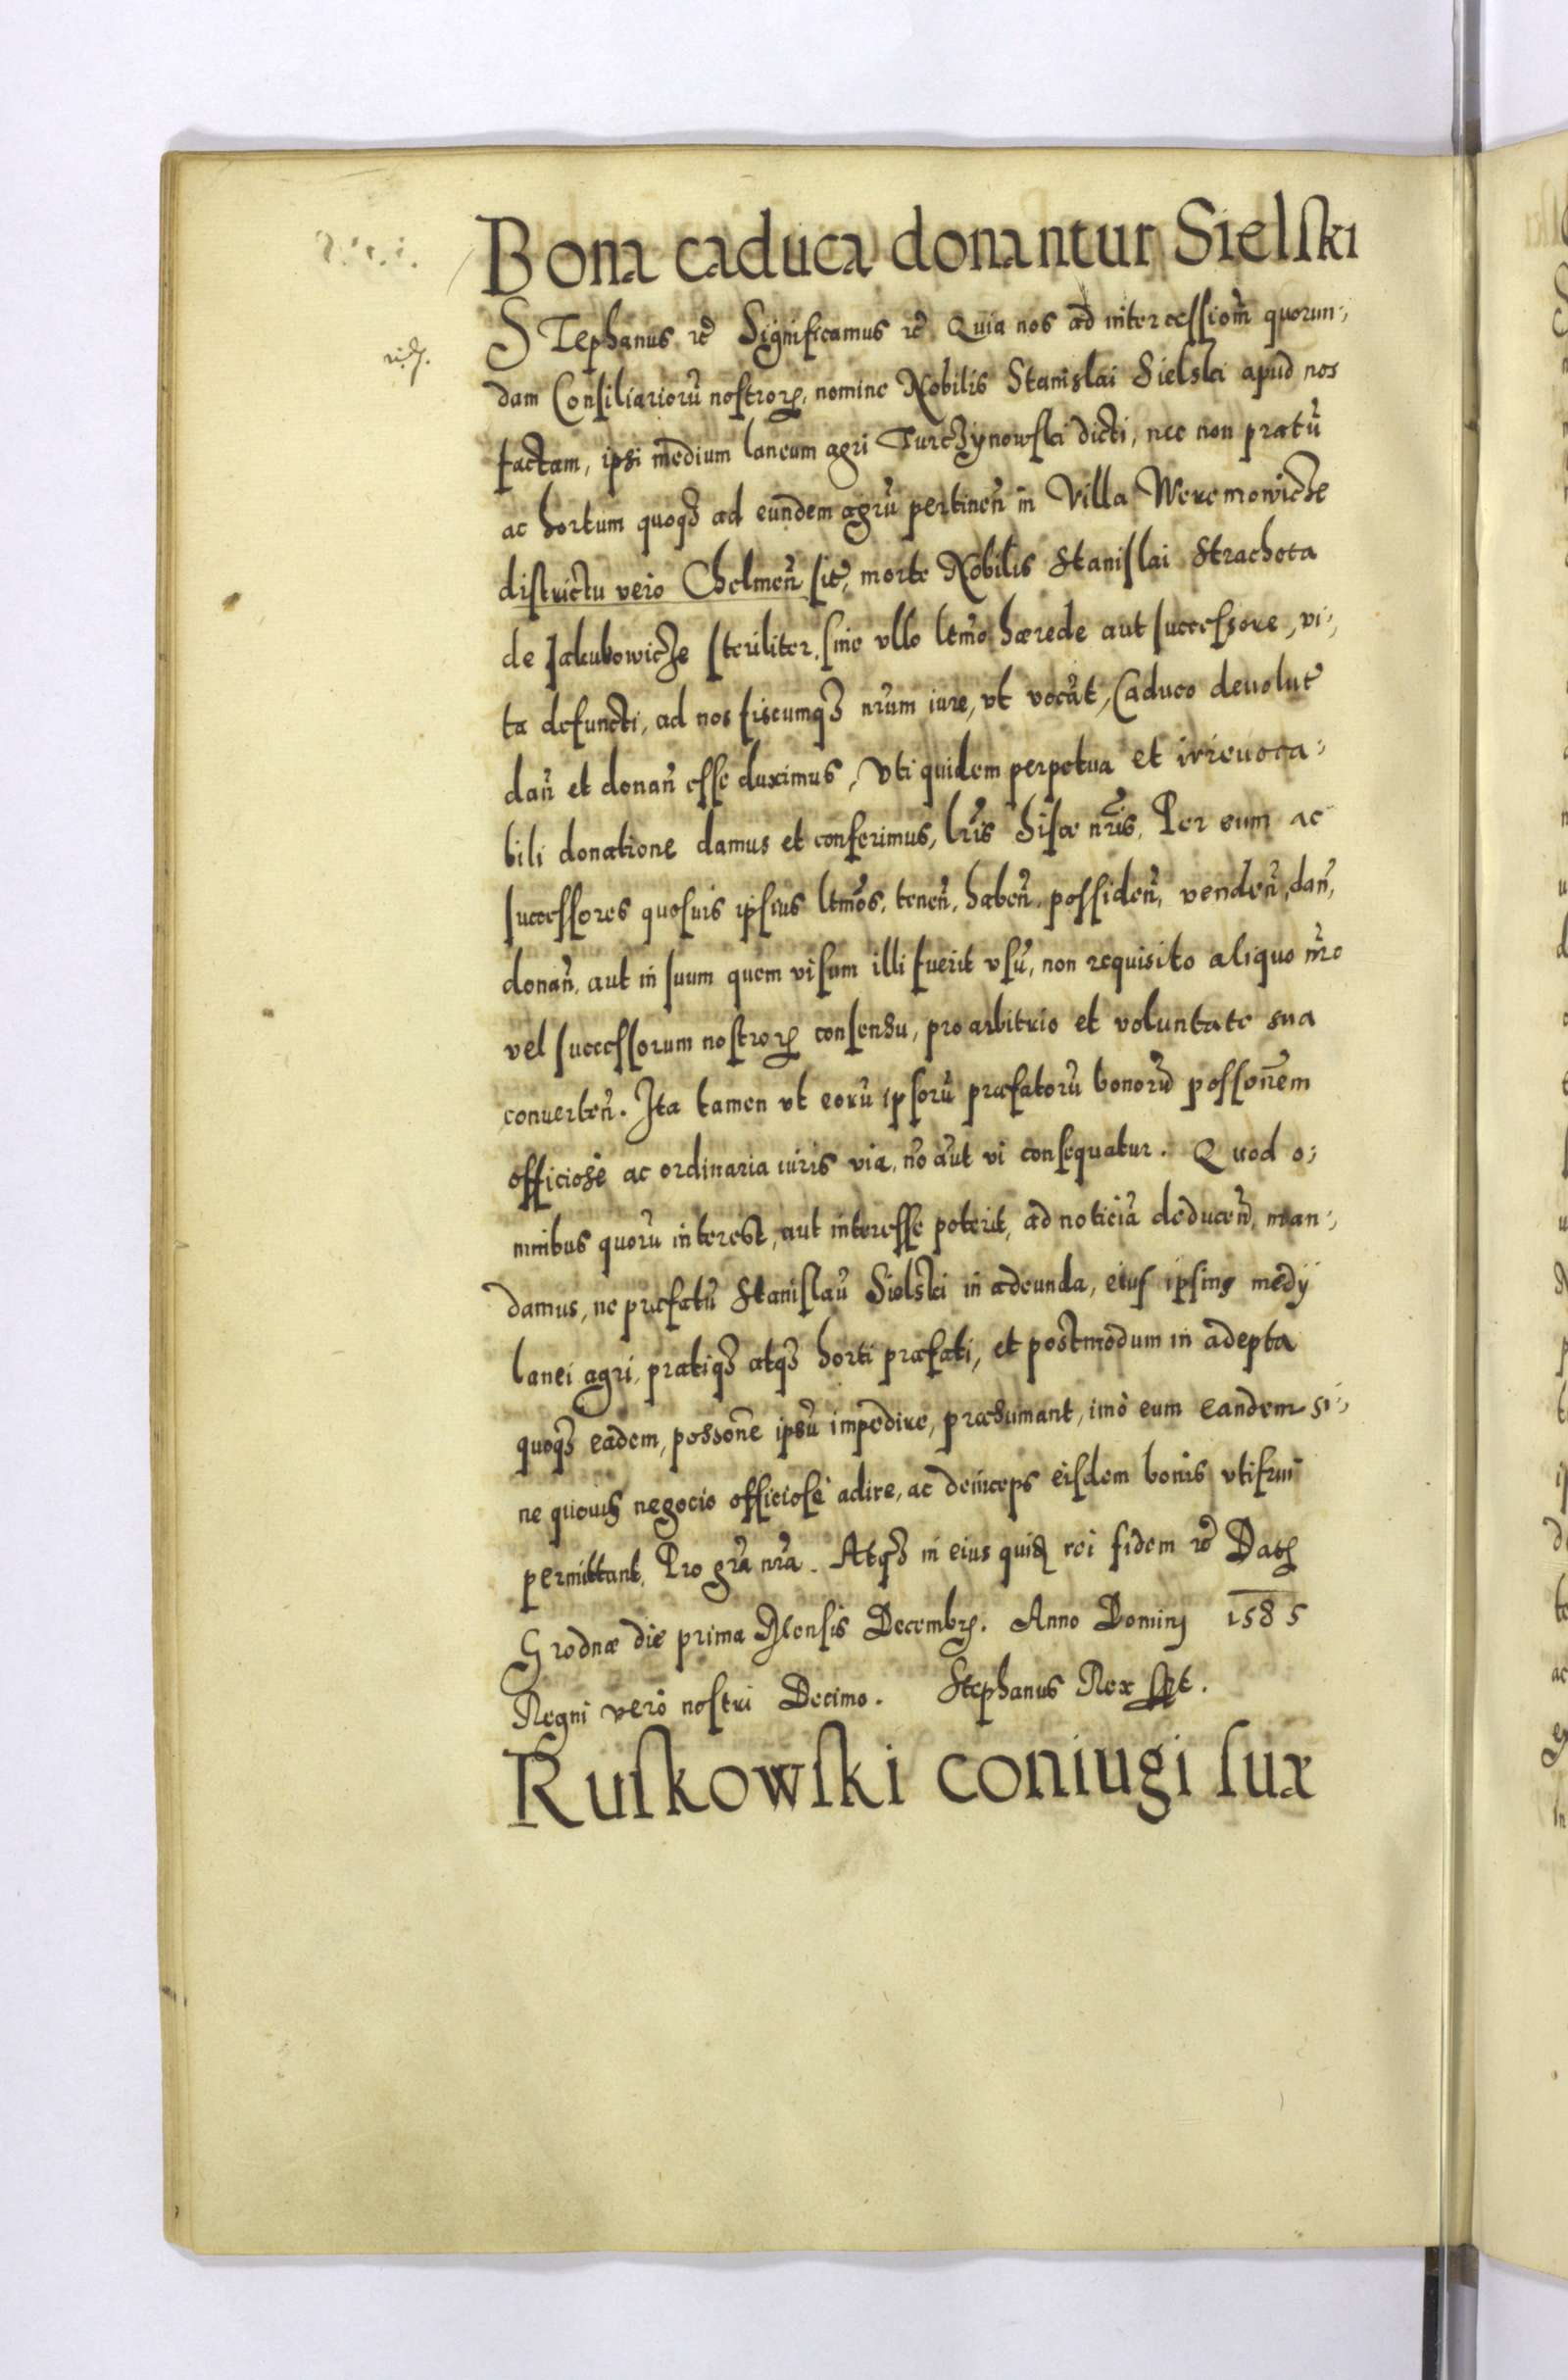 Bona caduca donantur Sielſki
STephanus etc̃ Significamus etc̃ Quia nos ad intercessionẽ quorun„
dam Consiliarioru᷉ nostroꝝ, nomine Nobilis Stanislai Sielski apud nos
factam, ipsi medium laneum agri Turczynowski dicti, nec non pratu᷉
ac hortum quoqꝫ ad eundem agru᷉ pertinen᷉ in Villa Weremowicze
districtu vero Chelmen᷉ sit᷉, morte Nobilis Stanislai Strachota
de Jakubowicze steriliter, sine vllo ltm̃o hærede aut successore, vi„
ta defuncti, ad nos fiscumqꝫ nr̃um iure, vt vocãt, Caduco deuolut᷉
dan᷉ et donan᷉ esse duximus, Vti quidem perpetua et irreuoca„
bili donatione damus et conferimus, lr̃is hisce nr̃is, Per eum ac
successores quosuis ipsius ltm̃os, tenen᷉, haben᷉, possiden᷉, venden᷉, dan᷉,
donan᷉, aut in suum quem visum illi fuerit vsu᷉, non requisito aliquo nr̃o
vel successorum nostroꝝ consensu, pro arbitrio et voluntate sua
conuerten᷉. Ita tamen vt eoru᷉ ipsoru᷉ præfatoru᷉ bonoru᷉ possonẽem
officiosè ac ordinaria iuris via, nõ aut vi consequatur. Quod o„
mnibus quoru᷉ interest, aut interesse poterit, ad noticiã deducen᷉, man„
damus, ne præfatu᷉ Stanislau᷉ Sielski in adeunda, eius ipsius medÿ
lanei agri, pratiqꝫ atqꝫ horti præfati, et postmodum in adepta
quoqꝫ eadem, possonẽ ipsu᷉ impedire, præsumant, imò eum eandem si„
ne quouis negocio officiosè adire, ac deinceps eisdem bonis vtifrui
permittant, Pro gr̃a nr̃a. Atqꝫ in eius quidẽ rei fidem etc̃ Datꝫ
Grodnæ die prima Mensis Decembrꝭ. Anno Dominj 1585
Regni verò nostri Decimo. Stephanus Rex sst.
Ruſkowſki coniugi ſuæ